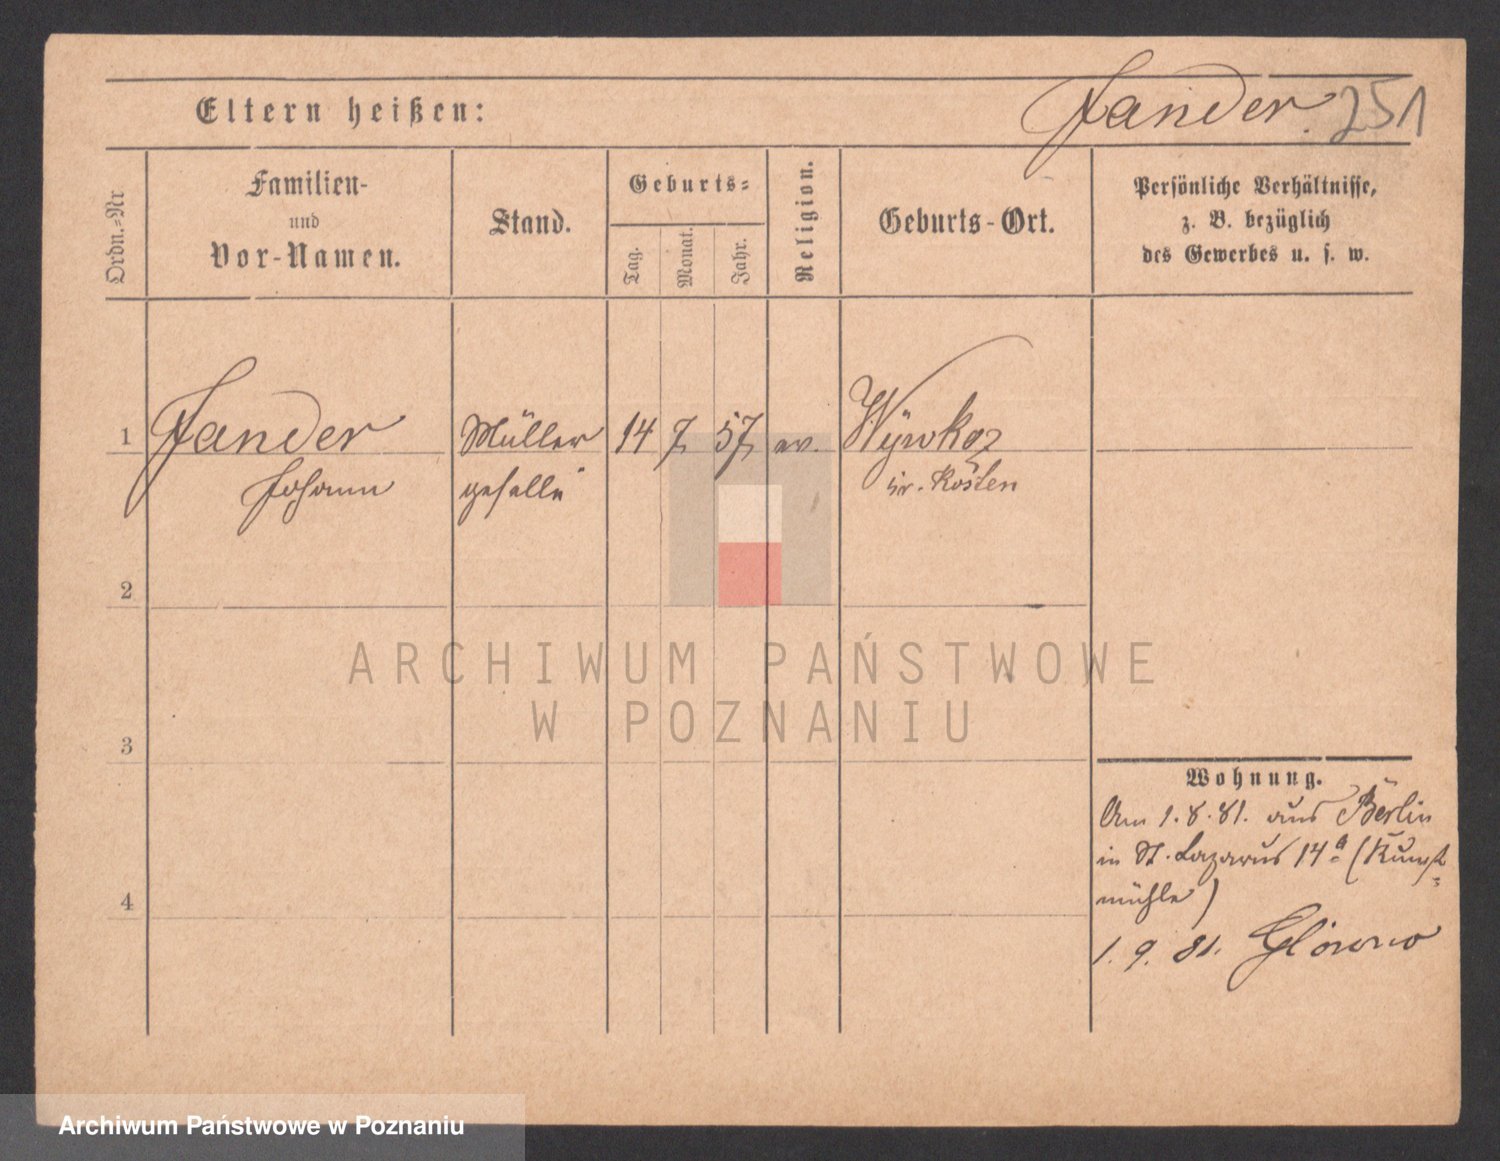 Eltern heißen:
Jander. 251
Ordn.-Nr
Familien-
und
Vor-Namen.
Stand.
Geburts-
Tag.
Monat.
Jahr.
Religion.
Geburts-Ort.
Persönliche Verhältnisse,
z. B. bezüglich
des Gewerbes u. s. w.
1 Jander Müller 14 7 57 ev.
Johann geselle Kr. Kosten
2
3
4
ARCHIWUM PAŃSTWOWE
W POZNANIU
Wohnung.
Am 1.8.81. aus Berlin
in St. Lazarus 14a (Kunst-
mühle)
1. 9. 81. Glowno
Archiwum Państwowe w Poznaniu